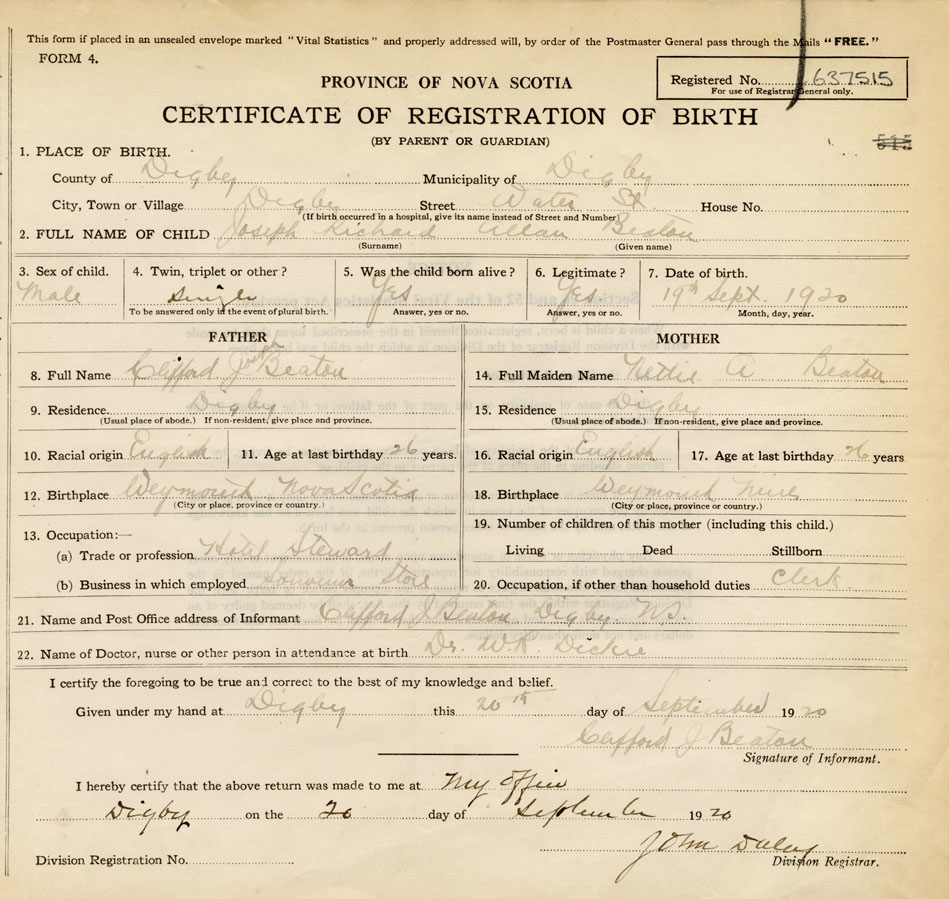 This form if placed in an unsealed envelope marked "Vital Statistics" and properly addressed will, by order of the Postmaster General pass through the Mails "FREE."
FORM 4.
Registered No. 637515
For use of Registrar General only.
PROVINCE OF NOVA SCOTIA
CERTIFICATE OF REGISTRATION OF BIRTH
(BY PARENT OR GUARDIAN)
515
1. PLACE OF BIRTH.
County of Digby Municipality of Digby
City, Town or Village Digby Street Water St. House No.
(If birth occurred in a hospital, give its name instead of Street and Number)
2. FULL NAME OF CHILD Joseph Richard Allan Beaton
(Surname) (Given name)
3. Sex of child. 4. Twin, triplet or other? 5. Was the child born alive? 6. Legitimate? 7. Date of birth.
Male single Yes Yes 19th Sept. 1920
To be answered only in the event of plural birth. Answer, yes or no. Answer, yes or no. Month, day, year.
FATHER MOTHER
8. Full Name Clifford Joseph Beaton 14. Full Maiden Name Nettie A Beaton
9. Residence. Digby 15. Residence Digby
(Usual place of abode.) If non-resident, give place and province. (Usual place of abode.) If non-resident, give place and province.
10. Racial origin English 11. Age at last birthday 26 years. 16. Racial origin English 17. Age at last birthday 26 years
12. Birthplace Weymouth Nova Scotia 18. Birthplace Weymouth
(City or place, province or country.) (City or place, province or country.)
13. Occupation:— 19. Number of children of this mother (including this child.)
(a) Trade or profession Hotel Steward Living Dead Stillborn
(b) Business in which employed Souvenir Store 20. Occupation, if other than household duties Clerk.
21. Name and Post Office address of Informant Clifford J Beaton Digby. N.S.
22. Name of Doctor, nurse or other person in attendance at birth Dr. W.R. Dickie
I certify the foregoing to be true and correct to the best of my knowledge and belief.
Given under my hand at Digby this 20th day of September 1920
Clifford J Beaton
Signature of Informant.
I hereby certify that the above return was made to me at My Office
Digby on the 20 day of September 1920
John Daley
Division Registration No. Division Registrar.